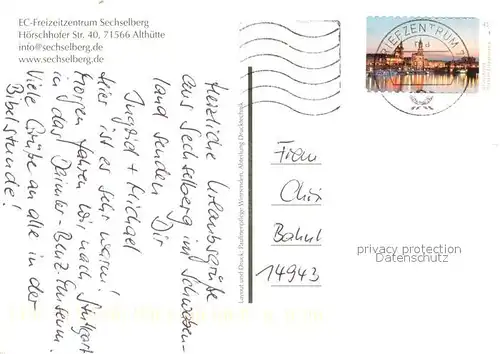 EC-Freizeitzentrum Sechselberg
Hörschhofer Str. 40, 71566 Althütte
info@sechselberg.de
www.sechselberg.de
Herzliche Urlaubsgrüße
aus Sechselberg im Schwaben-
land senden Dir
Ingrid + Michael
Hier ist es sehr warm!
Morgen fahren wir nach Stuttgart
in das Daimler-Benz-Museum.
Viele Grüße an alle in der
Bibelstunde!
Layout und Druck: Paulinenpflege Winnenden, Abteilung Drucktechnik
BRIEFZENTRUM 7
Frau
Bahnl
14943
privacy protection
Datenschutz